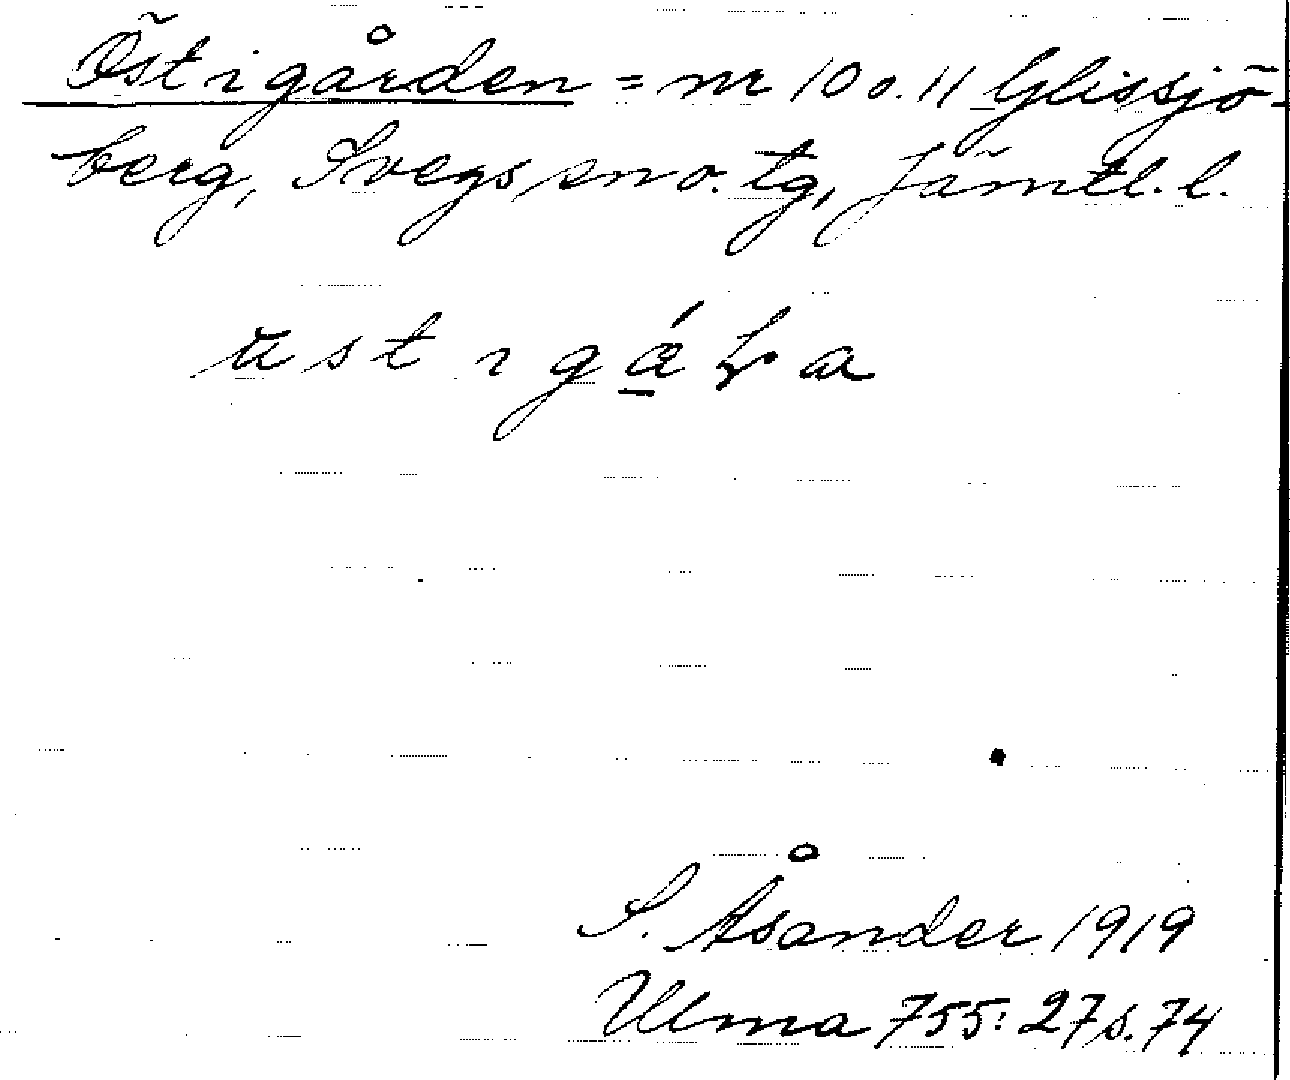 Östigården = nr 10 o. 11 Glissjö-
berg, Svegs sn o. tg, Jämtl. l.
S. Åsander 1919
Ulma 755:27 s. 74